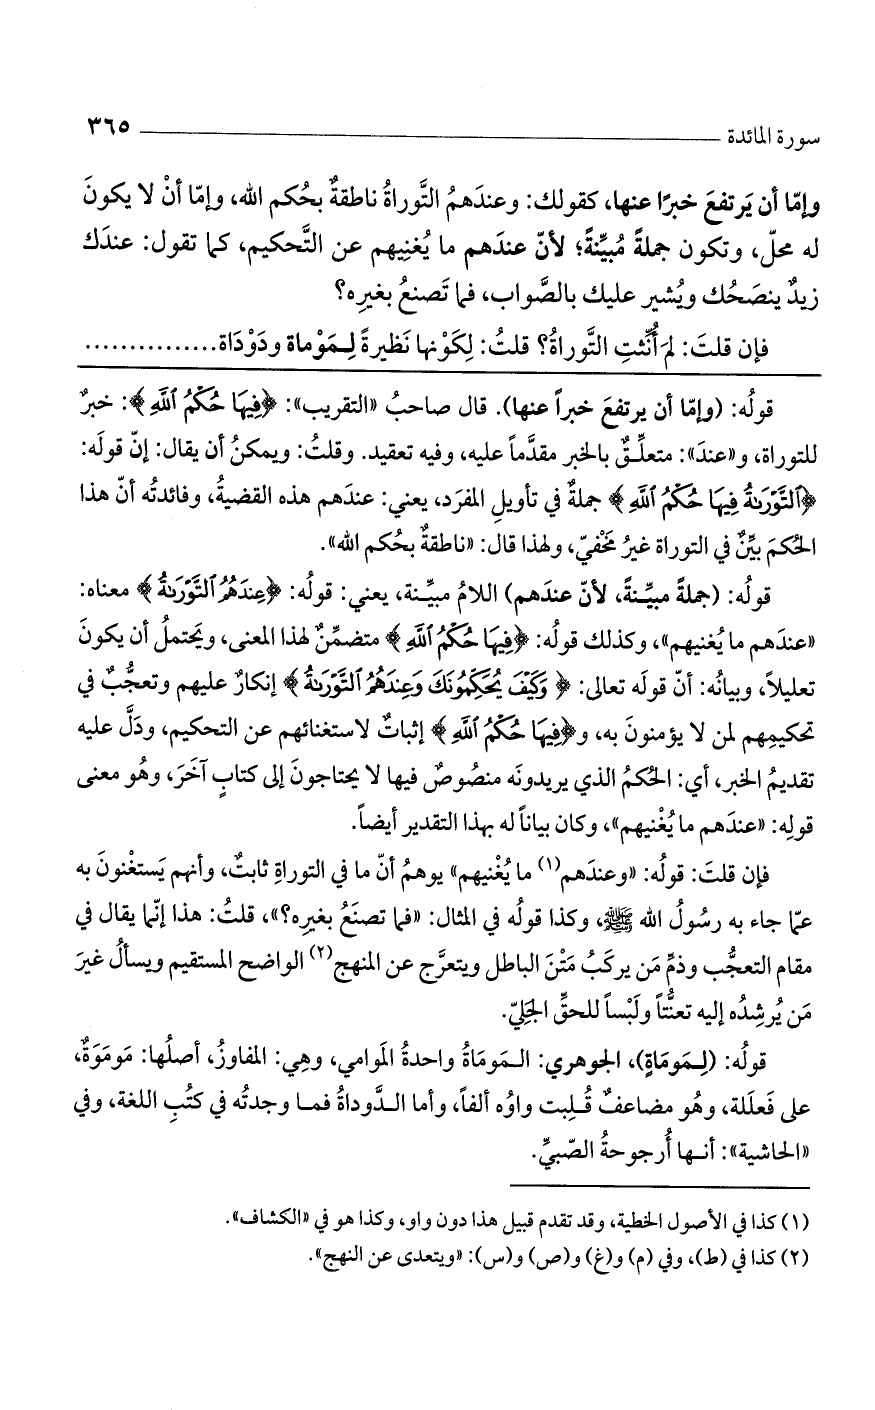 سورة المائدة ٣٦٥
وإمّا أن يَرتفعَ خبرًا عنها، كقولك: وعندَهمُ التَّوراةُ ناطقةٌ بحُكم الله، وإمّا أنْ لا يكونَ
له محلّ، وتكون جملةً مُبيِّنةً؛ لأنّ عندَهم ما يُغنِيهم عن التَّحكيم، كما تقول: عندَك
زيدٌ ينصَحُك ويُشير عليك بالصَّواب، فما تَصنعُ بغيرِه؟
فإن قلتَ: لمَ أُنِّثتِ التَّوراةُ؟ قلتُ: لِكَوْنها نَظيرةً لِـمَوْماة ودَوْدَاة...............
قولُه: (وإمّا أن يرتفعَ خبراً عنها). قال صاحبُ «التقريب»: ﴿فِيهَا حُكْمُ ٱللَّهِ﴾: خبرٌ
للتوراة، و«عندَ»: متعلِّقٌ بالخبر مقدَّماً عليه، وفيه تعقيد. وقلتُ: ويمكنُ أن يقال: إنّ قولَه:
﴿ٱلتَّوْرَىٰةُ فِيهَا حُكْمُ ٱللَّهِ﴾ جملةٌ في تأويلِ المفرَد، يعني: عندَهم هذه القضيةُ، وفائدتُه أنّ هذا
الحُكمَ بيِّنٌ في التوراة غيرُ مَخْفيّ، ولهذا قال: «ناطقةٌ بحُكم الله».
قولُه: (جملةً مبيِّنةً، لأنّ عندَهم) اللامُ مبيِّنة، يعني: قولُه: ﴿عِندَهُمُ ٱلتَّوْرَىٰةُ﴾ معناه:
«عندَهم ما يُغنيهم»، وكذلك قولُه: ﴿فِيهَا حُكْمُ ٱللَّهِ﴾ متضمِّنٌ لهذا المعنى، ويَحتملُ أن يكونَ
تعليلاً، وبيانُه: أنّ قولَه تعالى: ﴿وَكَيْفَ يُحَكِّمُونَكَ وَعِندَهُمُ ٱلتَّوْرَىٰةُ﴾ إنكارٌ عليهم وتعجُّبٌ في
تحكيمِهم لمن لا يؤمنونَ به، و﴿فِيهَا حُكْمُ ٱللَّهِ﴾ إثباتٌ لاستغنائهم عن التحكيم، ودَلَّ عليه
تقديمُ الخبر، أي: الحُكمُ الذي يريدونَه منصُوصٌ فيها لا يحتاجونَ إلى كتابٍ آخَرَ، وهُو معنى
قولِه: «عندَهم ما يُغْنيهم»، وكان بياناً له بهذا التقدير أيضاً.
فإن قلتَ: قولُه: «وعندَهم(١) ما يُغْنيهم» يوهمُ أنّ ما في التوراةِ ثابتٌ، وأنهم يَستغْنونَ به
عمّا جاء به رسُولُ الله ﷺ، وكذا قولُه في المثال: «فما تصنَعُ بغيرِه؟»، قلتُ: هذا إنّما يقال في
مقام التعجُّب وذمِّ مَن يركَبُ مَتْنَ الباطل ويتعرَّج عن المنهج(٢) الواضح المستقيم ويسألُ غيرَ
مَن يُرشِدُه إليه تعنُّتاً ولَبْساً للحقِّ الجَليّ.
قولُه: (لِـمَومَاةٍ)، الجوهري: الـمَومَاةُ واحدةُ المَوامي، وهي: المفاوزُ، أصلُها: مَومَوَةٌ،
على فَعلَلة، وهُو مضاعفٌ قُـلِبت واوُه ألفاً، وأما الـدَّوداةُ فمـا وجدتُه في كتُبِ اللغة، وفي
«الحاشية»: أنـها أُرجوحةُ الصّبيِّ.
(١) كذا في الأصول الخطية، وقد تقدم قبيل هذا دون واو، وكذا هو في «الكشاف».
(٢) كذا في (ط)، وفي (م) و(غ) و(ص) و(س): «ويتعدى عن النهج».